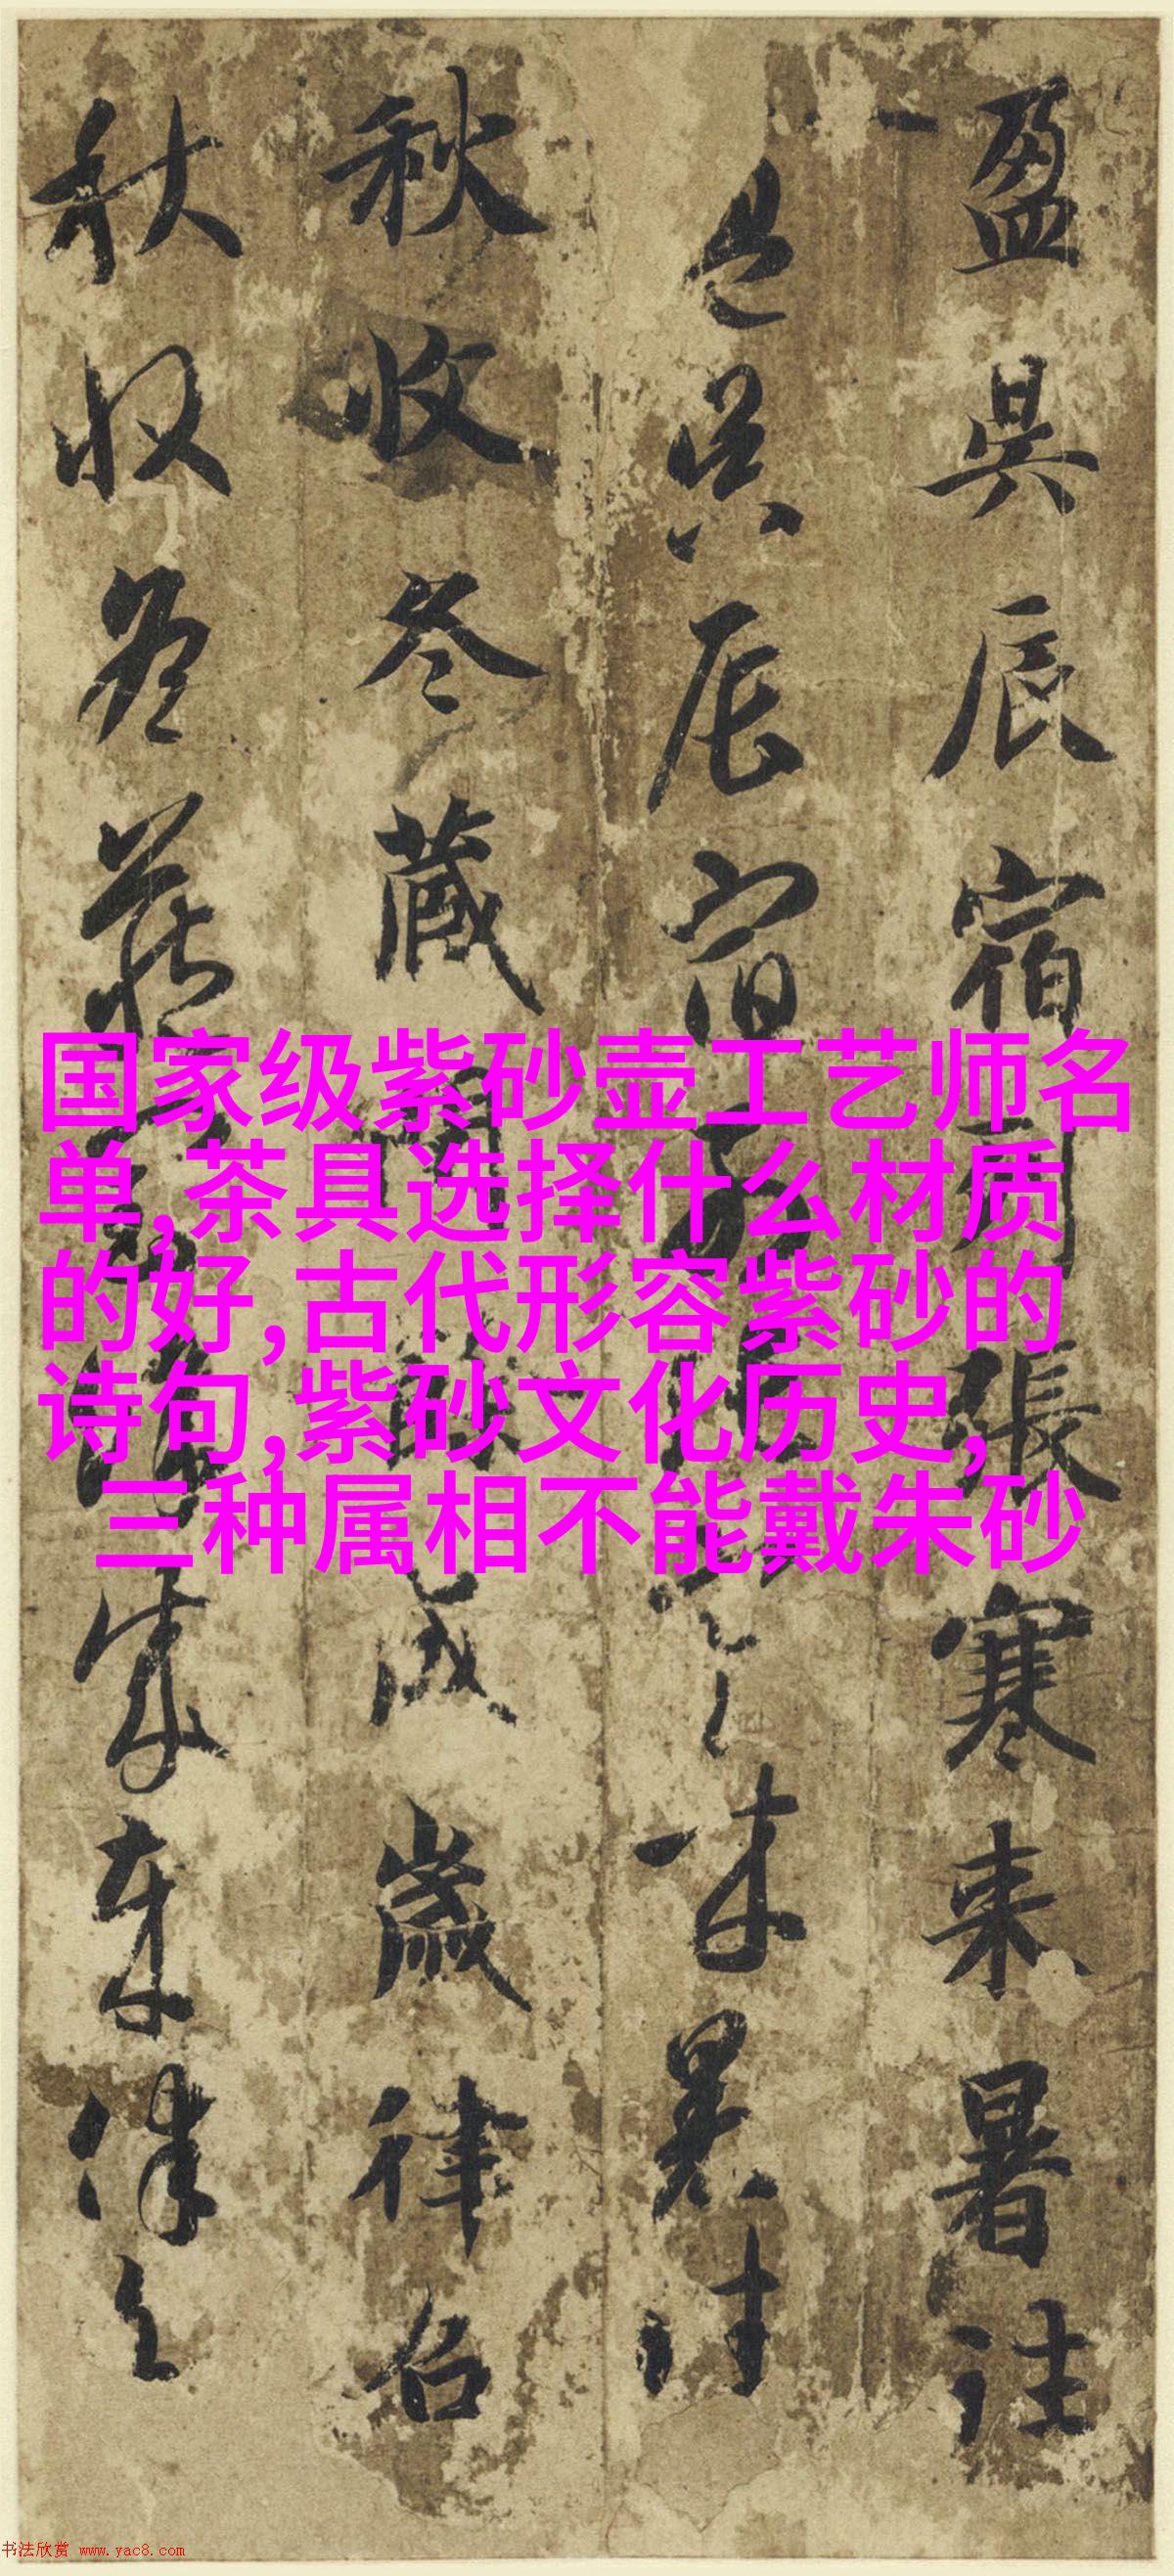 盈昃辰宿列張寒来暑往
盈昃辰宿列張寒来暑往
秋收冬蔵閏餘成歲律召
秋收冬藏
国家级紫砂壶工艺师名
单,茶具选择什么材质
的好,古代形容紫砂的
诗句,紫砂文化历史,
三种属相不能戴朱砂
书法欣赏 www.yac8.com